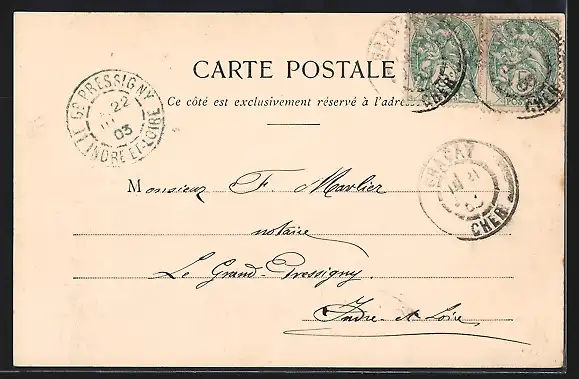 CARTE POSTALE
Ce côté est exclusivement réservé à l'adresse
Gd PRESSIGNY
22
03
INDRE-ET-LOIRE
GRAÇAY
21
CHER
5
CHER
CHER
Monsieur F. Marlier
notaire
Le Grand-Pressigny.
Indre-et-Loire